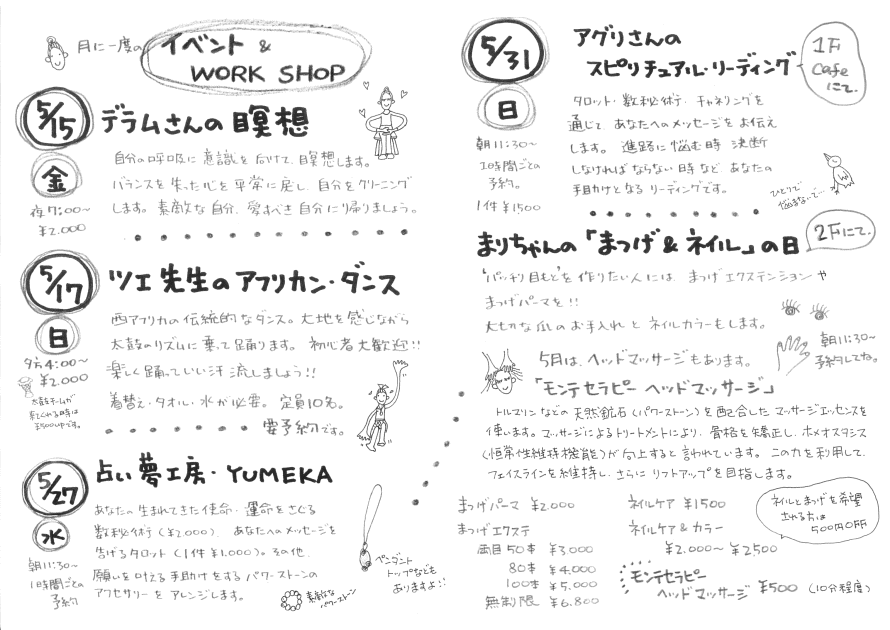 月に一度の イベント &
WORK SHOP
5/15
金
夜7:00〜
¥2.000
デラムさんの 瞑想
自分の呼吸に 意識を 向けて、瞑想します。
バランスを 失った心を 平常に戻し、自分をクリーニング
します。素敵な自分、愛すべき 自分に帰りましょう。
5/17
日
夕方4:00〜
¥2.000
太鼓チームが
来てくれる時は
¥500UPです。
ツェ先生の アフリカン・ダンス
西アフリカの 伝統的なダンス。大地を感じながら
太鼓のリズムに 乗って 踊ります。 初心者大歓迎!!
楽しく 踊って いい汗 流しましょう!!
着替え・タオル・水が必要。 定員10名。
要予約です。
5/27
水
朝11:30〜
1時間ごとの
予約
占い 夢工房・YUMEKA
あなたの 生まれてきた 使命・運命をさぐる
数秘術(¥2.000)、あなたへのメッセージを
告げるタロット(1件¥1.000)。その他、
願いを叶える 手助けをする パワーストーンの
アクセサリーを アレンジします。
素敵な
パワーストーン
ペンダント
トップなども
ありますよ!!
5/31
日
朝11:30〜
1時間ごとの
予約。
1件¥1500
アグリさんの
スピリチュアル・リーディング
1F
Cafe
にて。
タロット・数秘術・チャネリングを
通じて、あなたへのメッセージを お伝え
します。 進路に悩む時 決断
しなければ ならない時など、あなたの
手助けとなる リーディングです。
ひとりで
悩まないで…
まりちゃんの「まつげ & ネイル」の日
2Fにて。
"パッチリ目もと"を 作りたい人には、まつげエクステンションや
まつげパーマを!!
大切な爪のお手入れと ネイルカラーもします。
朝11:30〜
予約してね。
5月は、ヘッドマッサージもあります。
「モンテセラピー ヘッドマッサージ」
トルマリンなどの 天然鉱石(パワーストーン)を配合した マッサージエッセンスを
使います。マッサージによるトリートメントにより、骨格を矯正し、ホメオスタシス
(恒常性維持機能)が向上すると 言われています。 この力を利用して、
フェイスラインを維持し、さらに リフトアップを目指します。
まつげパーマ ¥2.000
まつげエクステ
両目50本 ¥3,000
80本 ¥4.000
100本 ¥5.000
無制限 ¥6.800
ネイルケア ¥1500
ネイルケア&カラー
¥2.000〜¥2500
モンテセラピー
ヘッドマッサージ ¥500(10分程度)
ネイルとまつげを希望
される方は
500円OFF